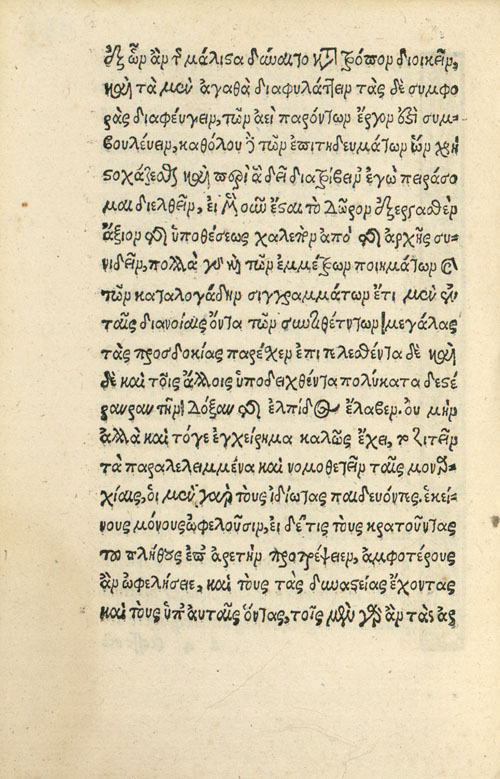 ἐξ ὧν ἂν τ̀ μάλιστα δύναιτο κατὰ τρόπον διοικεῖν,
καὶ τὰ μὲν ἀγαθὰ διαφυλάττειν τὰς δὲ συμφο
ρὰς διαφεύγειν, τῶν ἀεὶ παρόντων ἔργον ἐστὶ συμ-
βουλέυειν, καθόλου δ̀ τῶν ἐπιτηδευμάτων ὧν χρὴ
στοχάζεσθαι καὶ περὶ ἃ δεῖ διατρίβειν ἐγὼ πειράσο
μαι διελθεῖν, εἰ μὲν οὖν ἔσται τὸ Δῶρον ἐξεργασθὲν
ἄξιον τῆς ὑποθέσεως χαλεπὸν ἀπό τῆς ἀρχῆς συ-
νιδεῖν, πολλὰ γὰρ καὶ τῶν ἐμμέτρων ποιημάτων καὶ
τῶν καταλογάδην σιγγραμμάτων ἔτι μὲν ἐν
ταῖς διανοίαις ὄντα τῶν συντιθέντνων μεγάλας
τὰς προσδοκίας παρέχεν ἐπιτελεσθέντα δὲ καὶ
δὲ καὶ τοῖς ἄλλοις ὑποδειχθέντα πολύκατα δεσέ
ραν ραν τὴν Δόξαν τῆς ἐλπίδος ἔλαβεν. ὀυ μὴν
ἀλλὰ καὶ τόγε ἐγχείρημα καλῶς ἔχει, τὸ ζιτεῖν
τὰ παραλελειμμένα καὶ νομοθετεῖν ταῖς μοναρ-
χίαις, ὁι μὲν γὰρ τοὺς ἰδίωτας παιδευόντες ἐκεί-
νους μόνους ὠφελοῦσιν, ει δέ τις τοὺς κρατοῦντας
του πλήθους ἐπ' ἀρετὴν προτρέψειεν, ἀμφοτέρους
ἂν ὠφελήσειε, καὶ τοὺς τὰς δυναστείας ἔχοντας
καὶ τοὺς ὑπ' αυταῖς ὄντας, τοῖς μὲν γὰρ ἂν τὰς ἀς